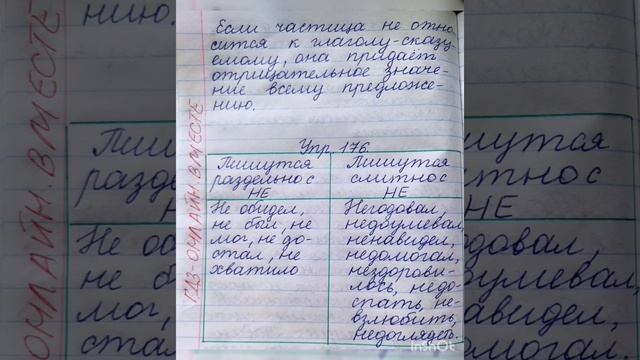 Если частица не отно
сится к глаголу-сказу-
емому, она придаёт
отрицательное значе-
ние всему предложе-
нию.
Упр. 176.
Пишутся
раздельно с
НЕ
Пишутся
слитно с
НЕ
Не обидел,
не был, не
мог, не до-
стал, не
хватило
Негодовал,
недоумевал,
ненавидел,
недомогал,
нездорови-
лось, недо-
спать, не-
взлюбить,
недоглядел.
ГДЗ-ОНЛАЙН.ВМЕСТЕ
InShOt